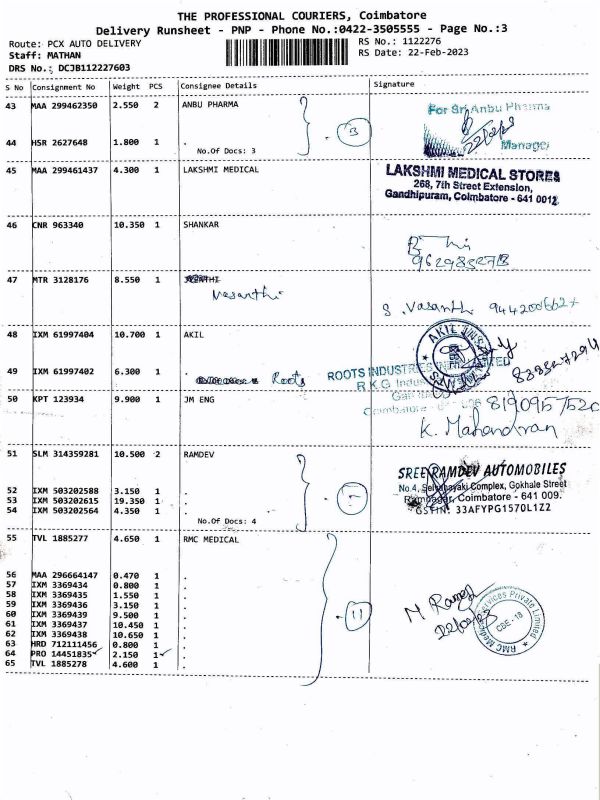 THE PROFESSIONAL COURIERS, Coimbatore
Delivery Runsheet - PNP - Phone No.:0422-3505555 - Page No.:3
Route: PCX AUTO DELIVERY
RS No.: 1122276
Staff: MATHAN
RS Date: 22-Feb-2023
DRS No.: DCJB112227603
S No Consignment No Weight PCS Consignee Details Signature
43 MAA 299462350 2.550 2 ANBU PHARMA
For Sri Anbu Pharma
3
44 HSR 2627648 1.800 1 .
Manager
No.Of Docs: 3
45 MAA 299461437 4.300 1 LAKSHMI MEDICAL
LAKSHMI MEDICAL STORES
268, 7th Street Extension,
Gandhipuram, Coimbatore - 641 012.
46 CNR 963340 10.350 1 SHANKAR
47 MTR 3128176 8.550 1
Vasanthi
S. Vasanthi
48 IXM 61997404 10.700 1 AKIL
49 IXM 61997402 6.300 1 .
Roots
ROOTS INDUSTRIES
50 KPT 123934 9.900 1 JM ENG
8190957520
K. Mahendran
51 SLM 314359281 10.500 2 RAMDEV
SREE RAMDEV AUTOMOBILES
No.4, Selvanayaki Complex, Gokhale Street
Ramnagar, Coimbatore - 641 009.
GSTIN: 33AFYPG1570L1Z2
52 IXM 503202588 3.150 1 .
53 IXM 503202615 19.350 1 .
54 IXM 503202564 4.350 1 .
No.Of Docs: 4
55 TVL 1885277 4.650 1 RMC MEDICAL
56 MAA 296664147 0.470 1 .
57 IXM 3369434 0.800 1 .
58 IXM 3369435 1.550 1 .
59 IXM 3369436 3.150 1 .
60 IXM 3369439 9.500 1 .
61 IXM 3369437 10.450 1 .
62 IXM 3369438 10.650 1 .
63 HRD 712111456 0.800 1 .
64 PRO 14451835 2.150 1 .
65 TVL 1885278 4.600 1 .
11
M Ramesh
RMC Medical Services Private Limited
CBE - 18